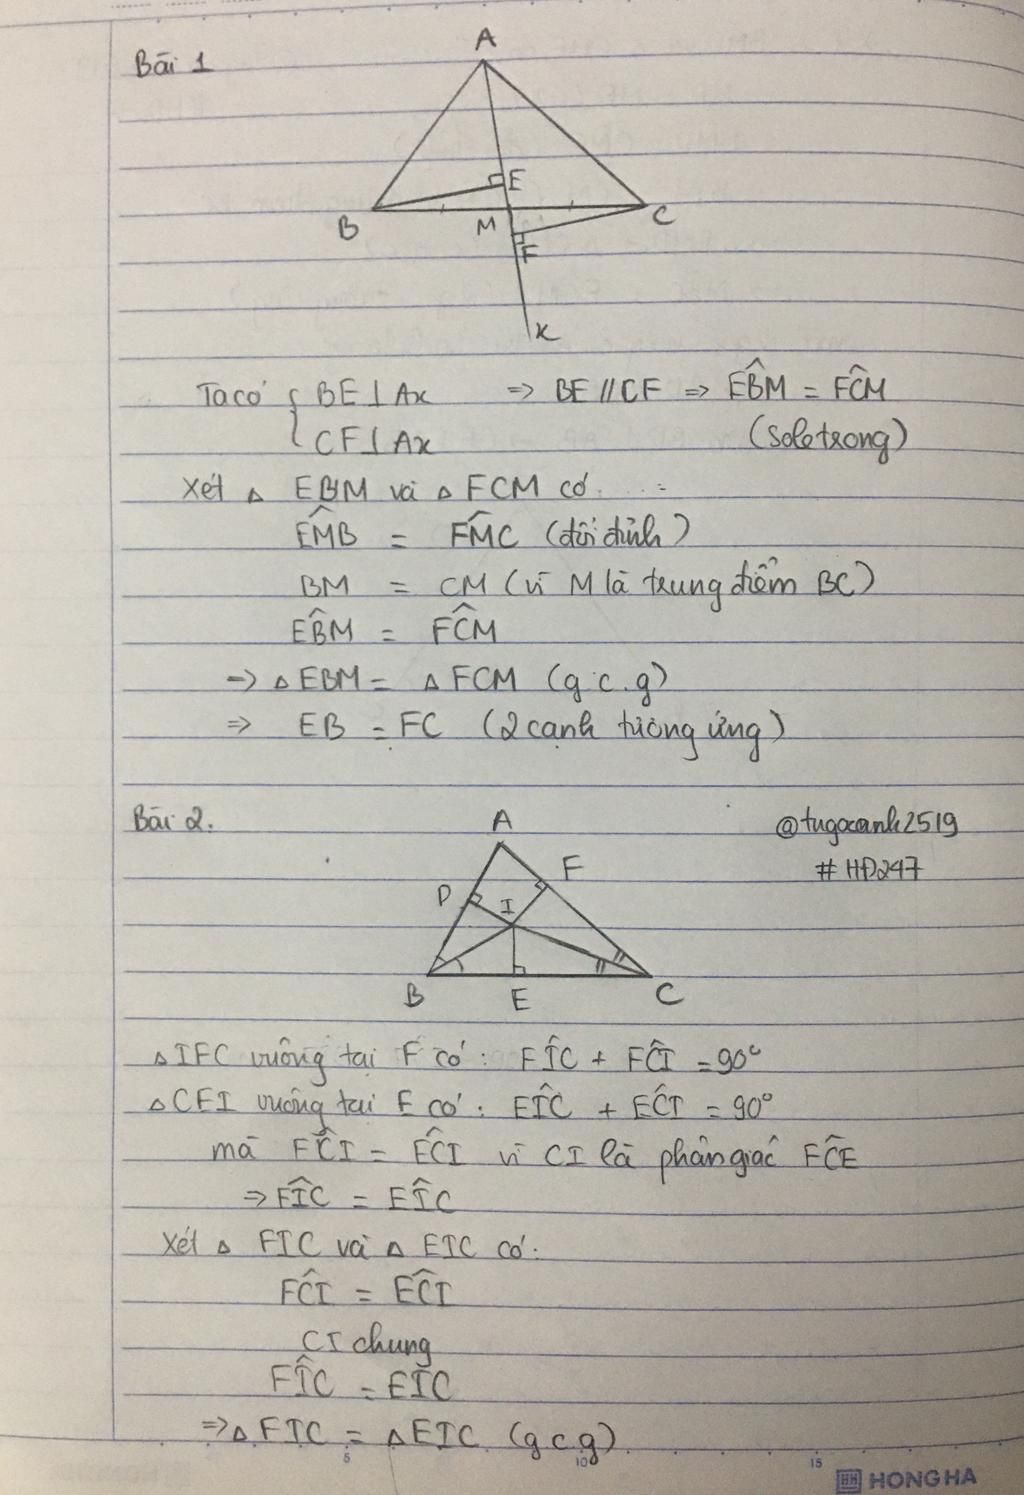 Bài 1
A
E
B
M
C
F
x
Ta có { BE ⊥ Ax => BE // CF => EB̂M = FĈM
CF ⊥ Ax (sole trong)
Xét △ EBM và △ FCM có :
EM̂B = FM̂C (đối đỉnh)
BM = CM (vì M là trung điểm BC)
EB̂M = FĈM
=> △ EBM = △ FCM (g.c.g)
=> EB = FC (2 cạnh tương ứng)
Bài 2.
@tugocanh2519
# HĐ247
A
F
D
I
B
E
C
△ IFC vuông tại F có : FÎC + FĈI = 90°
△ CEI vuông tại E có : EÎC + EĈI = 90°
mà FĈI = EĈI vì CI là phân giác FĈE
=> FÎC = EÎC
Xét △ FIC và △ EIC có :
FĈI = EĈI
CI chung
FÎC = EÎC
=> △ FIC = △ EIC (g c g)
5 10 15
HH HONG HA